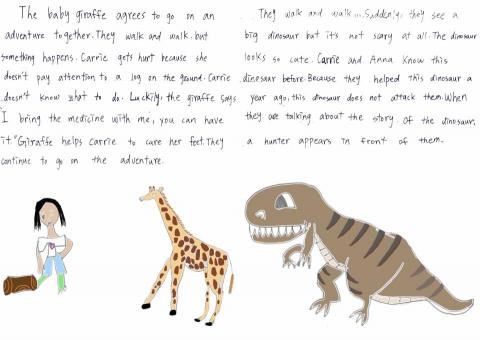 The baby giraffe agrees to go on an
adventure together. They walk and walk. but
something happens. Carrie gets hurt because she
doesn't pay attention to a log on the ground. Carrie
doesn't know what to do. Luckily, the giraffe says
I bring the medicine with me, you can have
it." Giraffe helps Carrie to cure her feet. They
continue to go on the adventure.
They walk and walk... Suddenly, they see a
big dinosaur but it's not scary at all. The dinosaur
looks so cute. Carrie and Anna know this
dinosaur before. Because they helped this dinosaur a
year ago, this dinosaur does not attack them. When
they are talking about the story. Of the dinosaur,
a hunter appears in front of them.